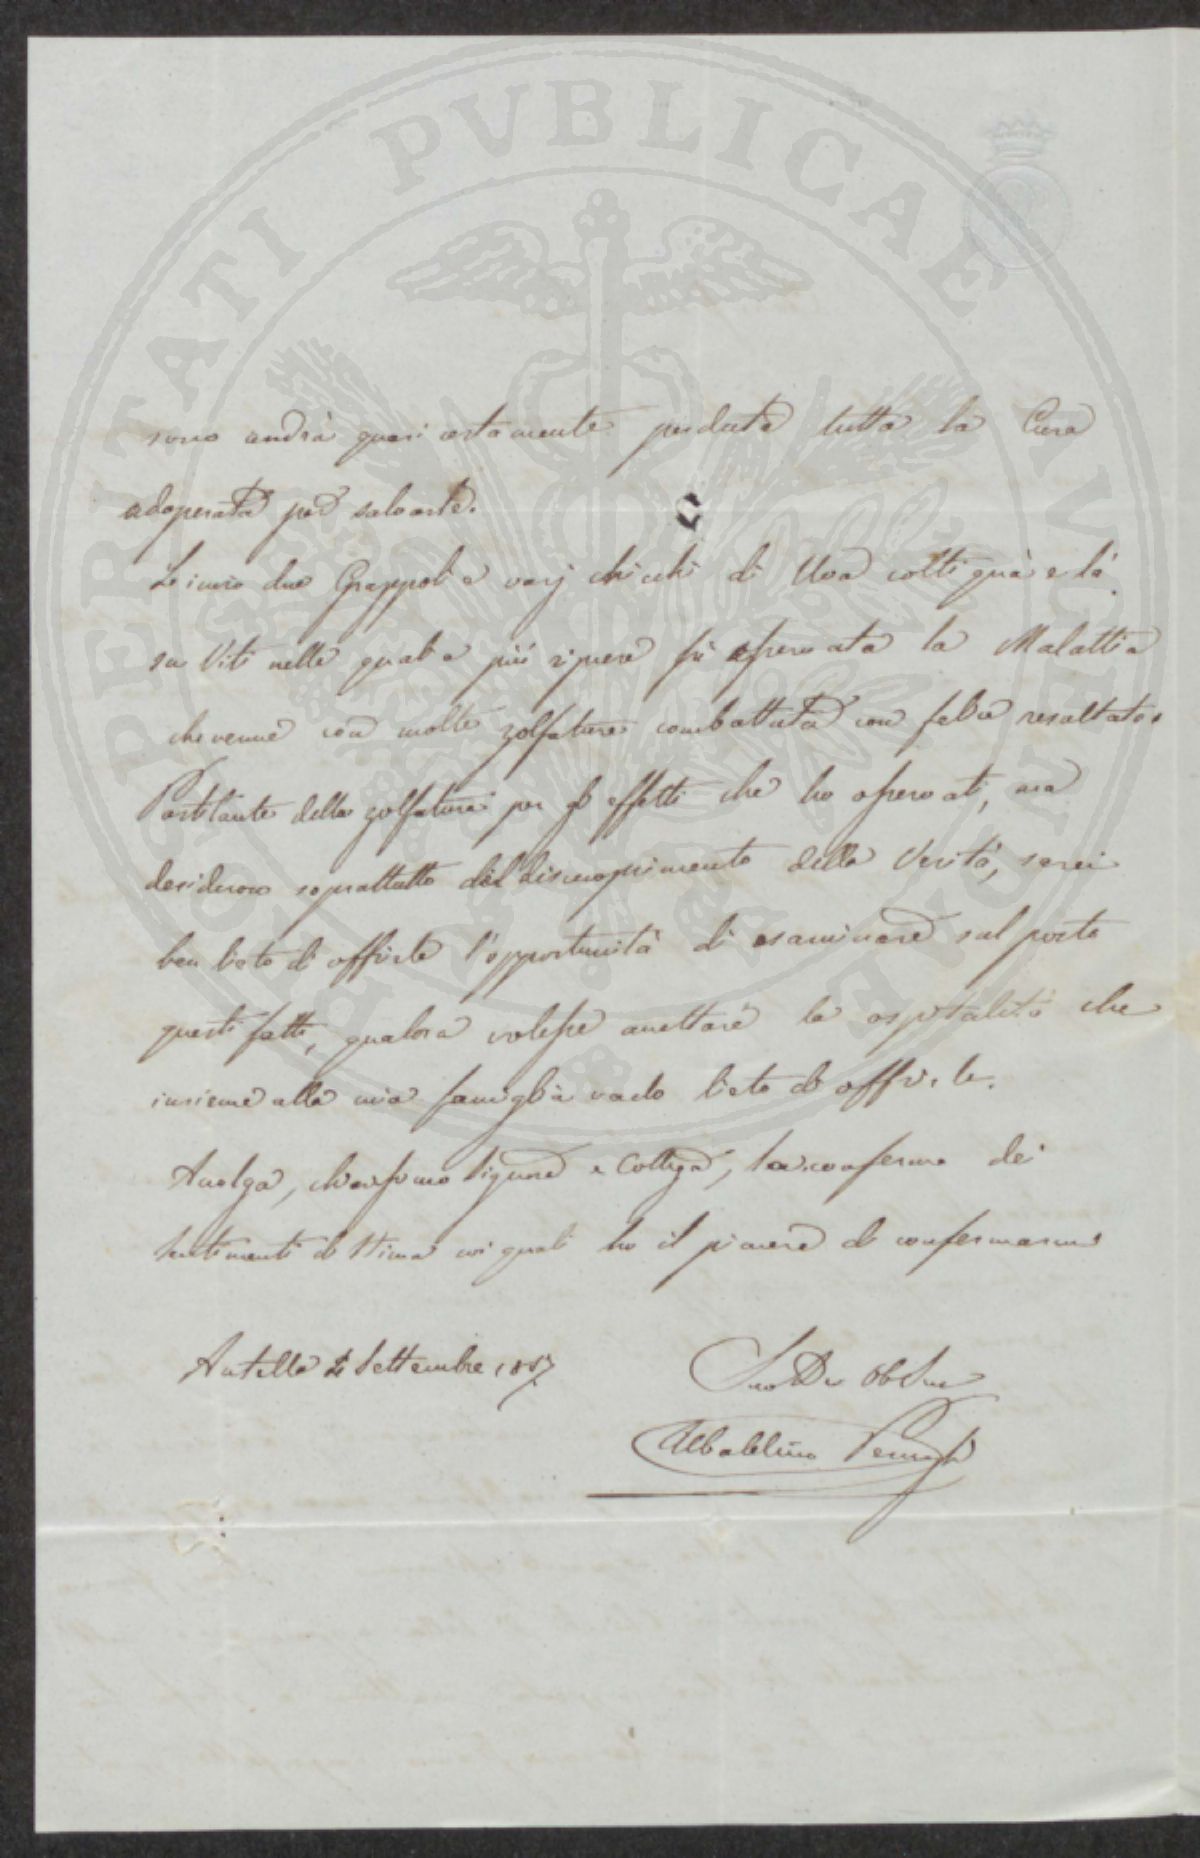 PROSPERITATI PVBLICAE AVGENDAE
sono andrà quasi certamente perduta tutta la Cura
adoperata per salvarle.
Le invio due Grappoli e varj chicchi di Uva colti quà e là
su Viti nelle quali e più e più fu osservata la Malattia
che venne con molte zolfature combattuta con felice resultato.
Partitante delle zolfature per gli effetti che ho osservati, ma
desideroso soprattutto del discuoprimento della Verità, sarei
ben lieto di offrirle l'opportunità di esaminare sul posto
questi fatti, qualora volesse accettare la ospitalità che
insieme alla mia famiglia vado lieto di offrirle.
Accolga, chiarissimo Signore e Collega, la conferma dei
sentimenti di stima coi quali ho il piacere di confermarmi
Antella 2 Settembre 1857
Suo Dev Obb Serv
Ubaldino Peruzzi